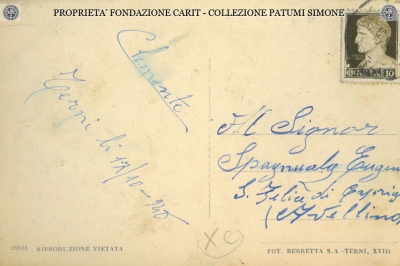 PROPRIETA' FONDAZIONE CARIT - COLLEZIONE PATUMI SIMONE
Clemente
Terni li 17/10-940
Il Signor
Spagnuolo Eugen
S. Felice di
(Avellino
10
26605 RIPRODUZIONE VIETATA
FOT. BERRETTA S.A - TERNI, XVIII